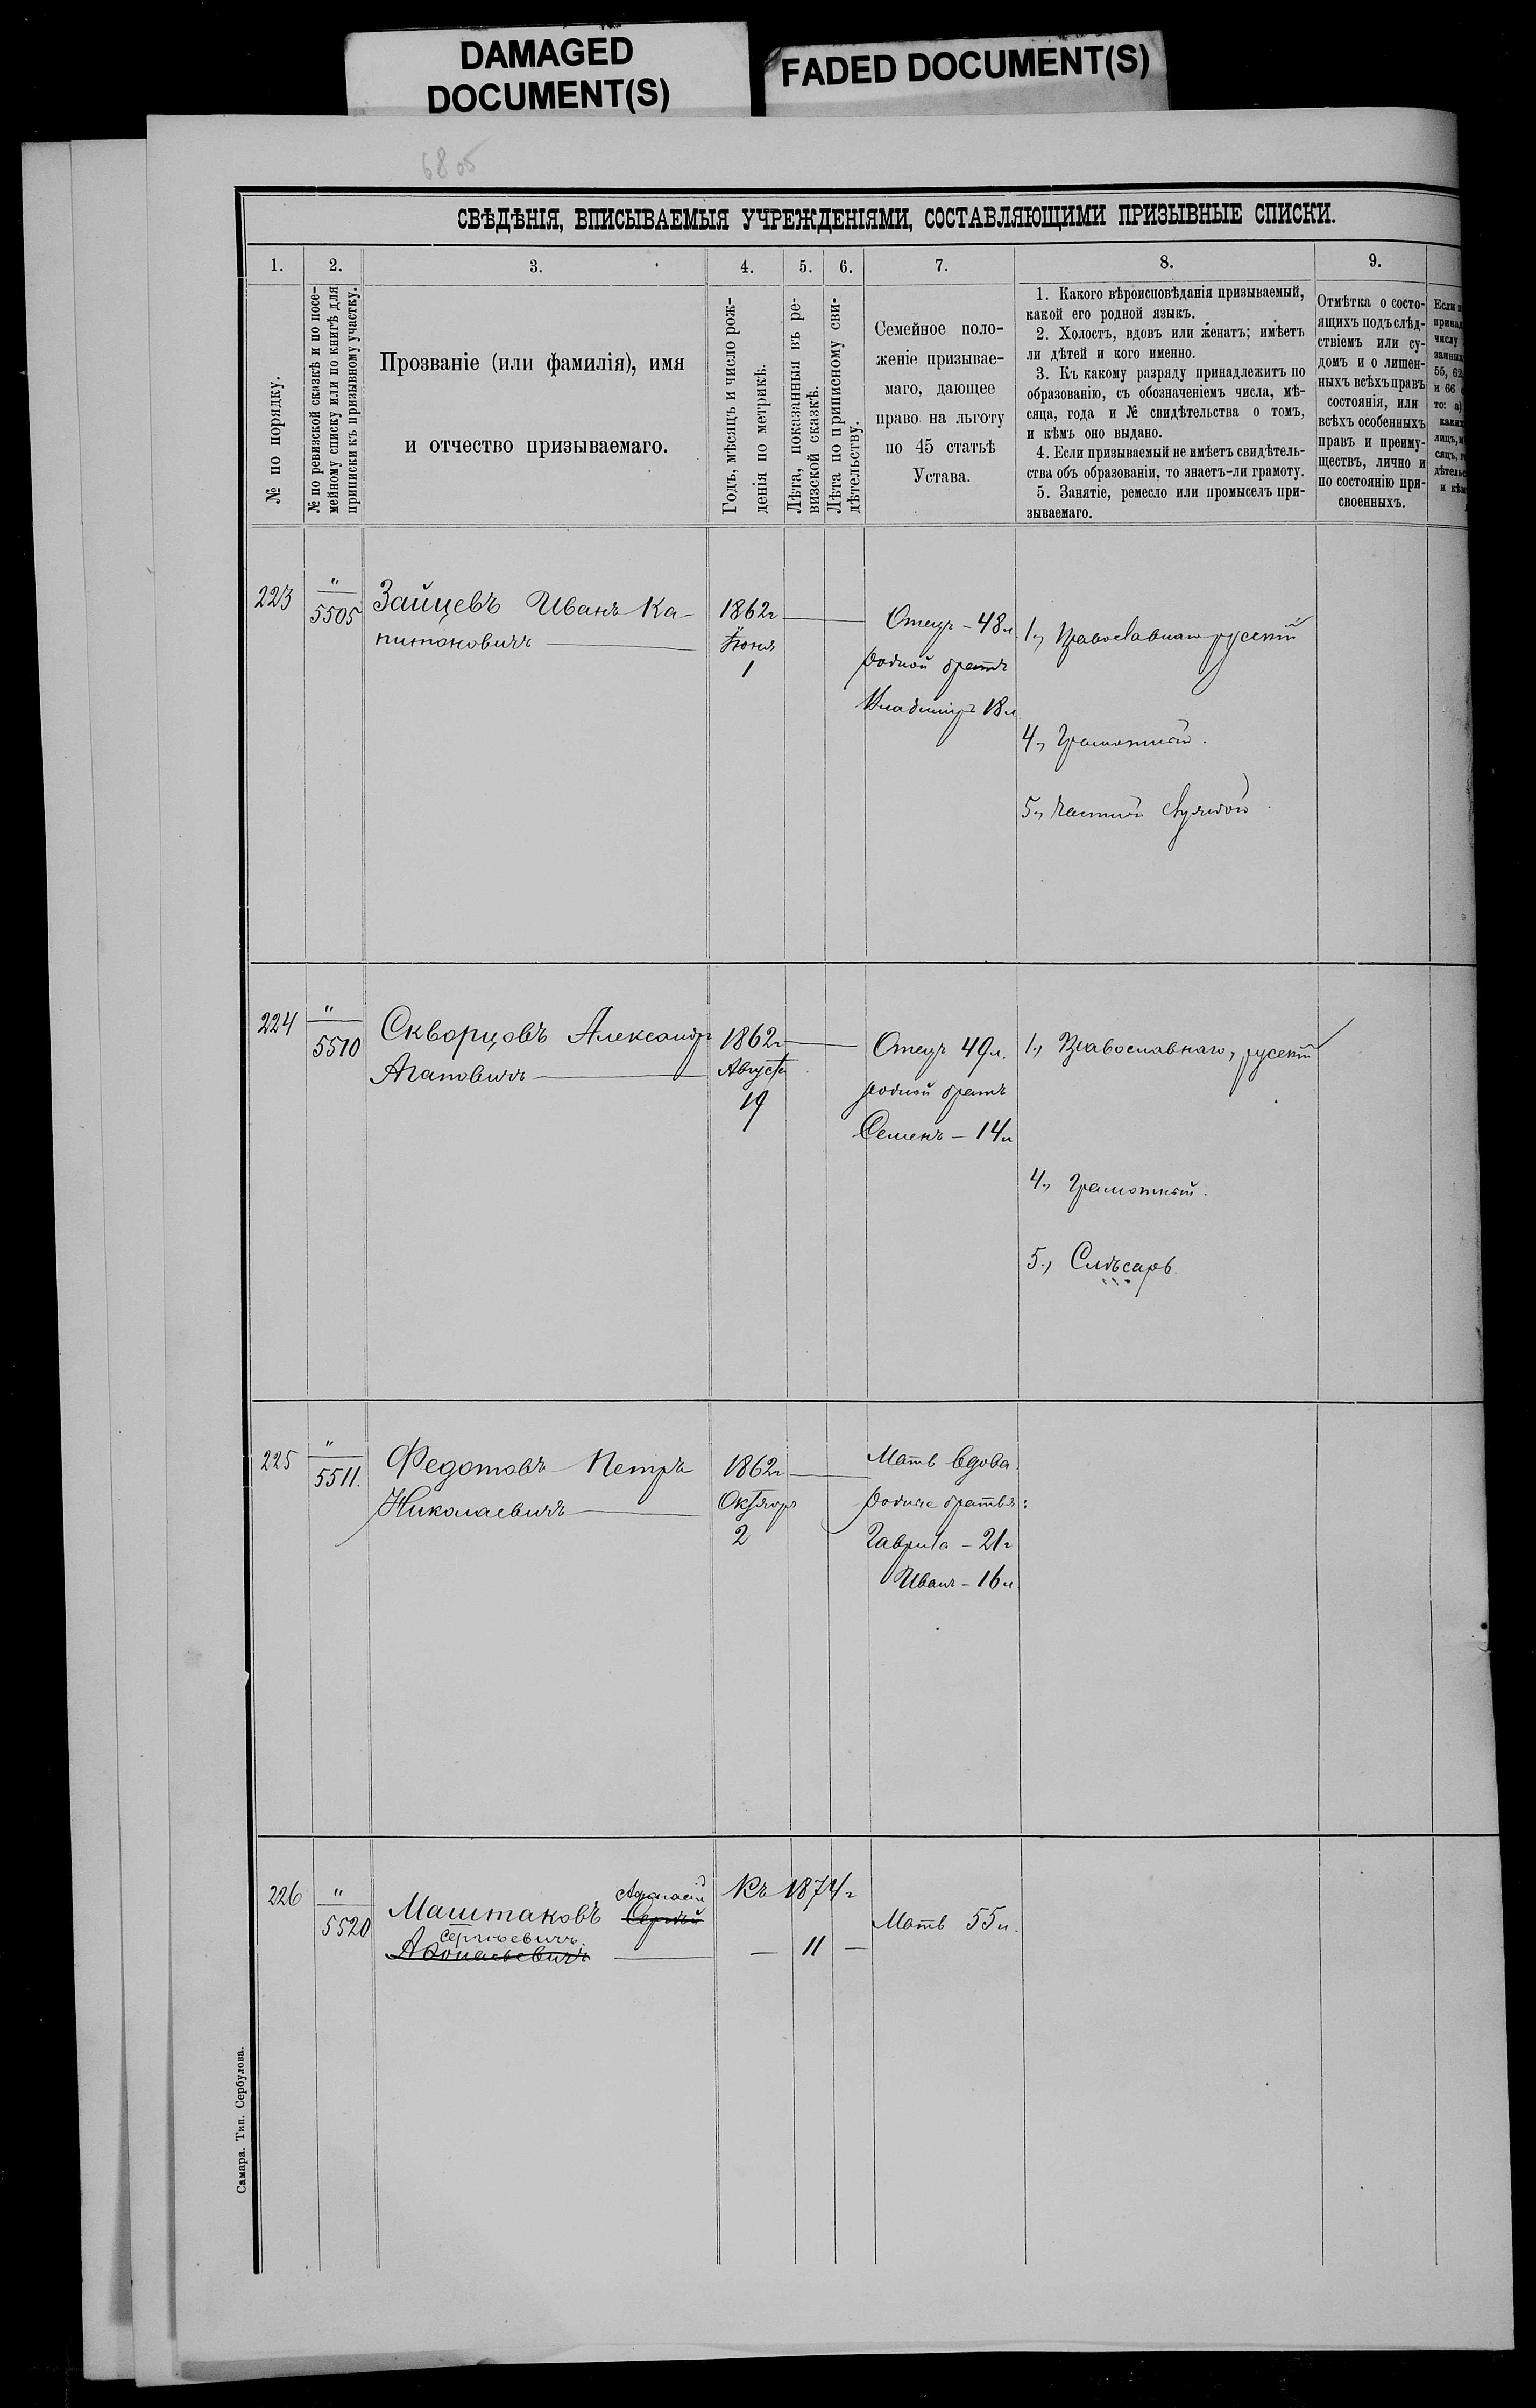 DAMAGED
DOCUMENT(S)
FADED DOCUMENT(S)
68об
СВѢДѢНІЯ, ВПИСЫВАЕМЫЯ УЧРЕЖДЕНІЯМИ, СОСТАВЛЯЮЩИМИ ПРИЗЫВНЫЕ СПИСКИ.
1.
2.
3.
4.
5.
6.
7.
8.
9.
№ по порядку.
№ по ревизской сказкѣ и по посе-
мейному списку или по книгѣ для
приписки къ призывному участку.
Прозваніе (или фамилія), имя
и отчество призываемаго.
Годъ, мѣсяцъ и число рож-
денія по метрикѣ.
Лѣта, показанныя въ ре-
визской сказкѣ.
Лѣта по приписному сви-
дѣтельству.
Семейное поло-
женіе призывае-
маго, дающее
право на льготу
по 45 статьѣ
Устава.
1. Какого вѣроисповѣданія призываемый,
какой его родной языкъ.
2. Холостъ, вдовъ или женатъ; имѣетъ
ли дѣтей и кого именно.
3. Къ какому разряду принадлежитъ по
образованію, съ обозначеніемъ числа, мѣ-
сяца, года и № свидѣтельства о томъ,
и кѣмъ оно выдано.
4. Если призываемый не имѣетъ свидѣтель-
ства объ образованіи, то знаетъ-ли грамоту.
5. Занятіе, ремесло или промыселъ при-
зываемаго.
Отмѣтка о состо-
ящихъ подъ слѣд-
ствіемъ или су-
домъ и о лишен-
ныхъ всѣхъ правъ
состоянія, или
всѣхъ особенныхъ
правъ и преиму-
ществъ, лично и
по состоянію при-
своенныхъ.
Если п
принад
числу
занных
55, 62,
и 66
то: а)
каких
лицъ, м
сяцъ, г
дѣтельс
и кѣм
223
"
5505
Зайцевъ Иванъ Ка-
питоновичъ
1862г
Іюня
1
Отецъ - 48л.
родной братъ
Владиміръ 18л
1., Православнаго русскій
4., Грамотный.
5.,
224
"
5510
Скворцовъ Александръ
Агаповичъ
1862г
Августа
19
Отецъ 49л.
родной братъ
Семенъ - 14л
1., Православнаго, русскій
4., Грамотный.
5., Слѣсарь
225
"
5511.
Федотовъ Петръ
Николаевичъ
1862г
Октября
2
Мать вдова.
родные братья:
Гаврила - 21г
Иванъ - 16л.
226
"
5520
Маштаковъ Сергѣй Афанасій
Сергѣевичъ.
Афонасьевичъ
Къ 1874г
— 11 —
Мать 55л.
Самара. Тип. Сербулова.